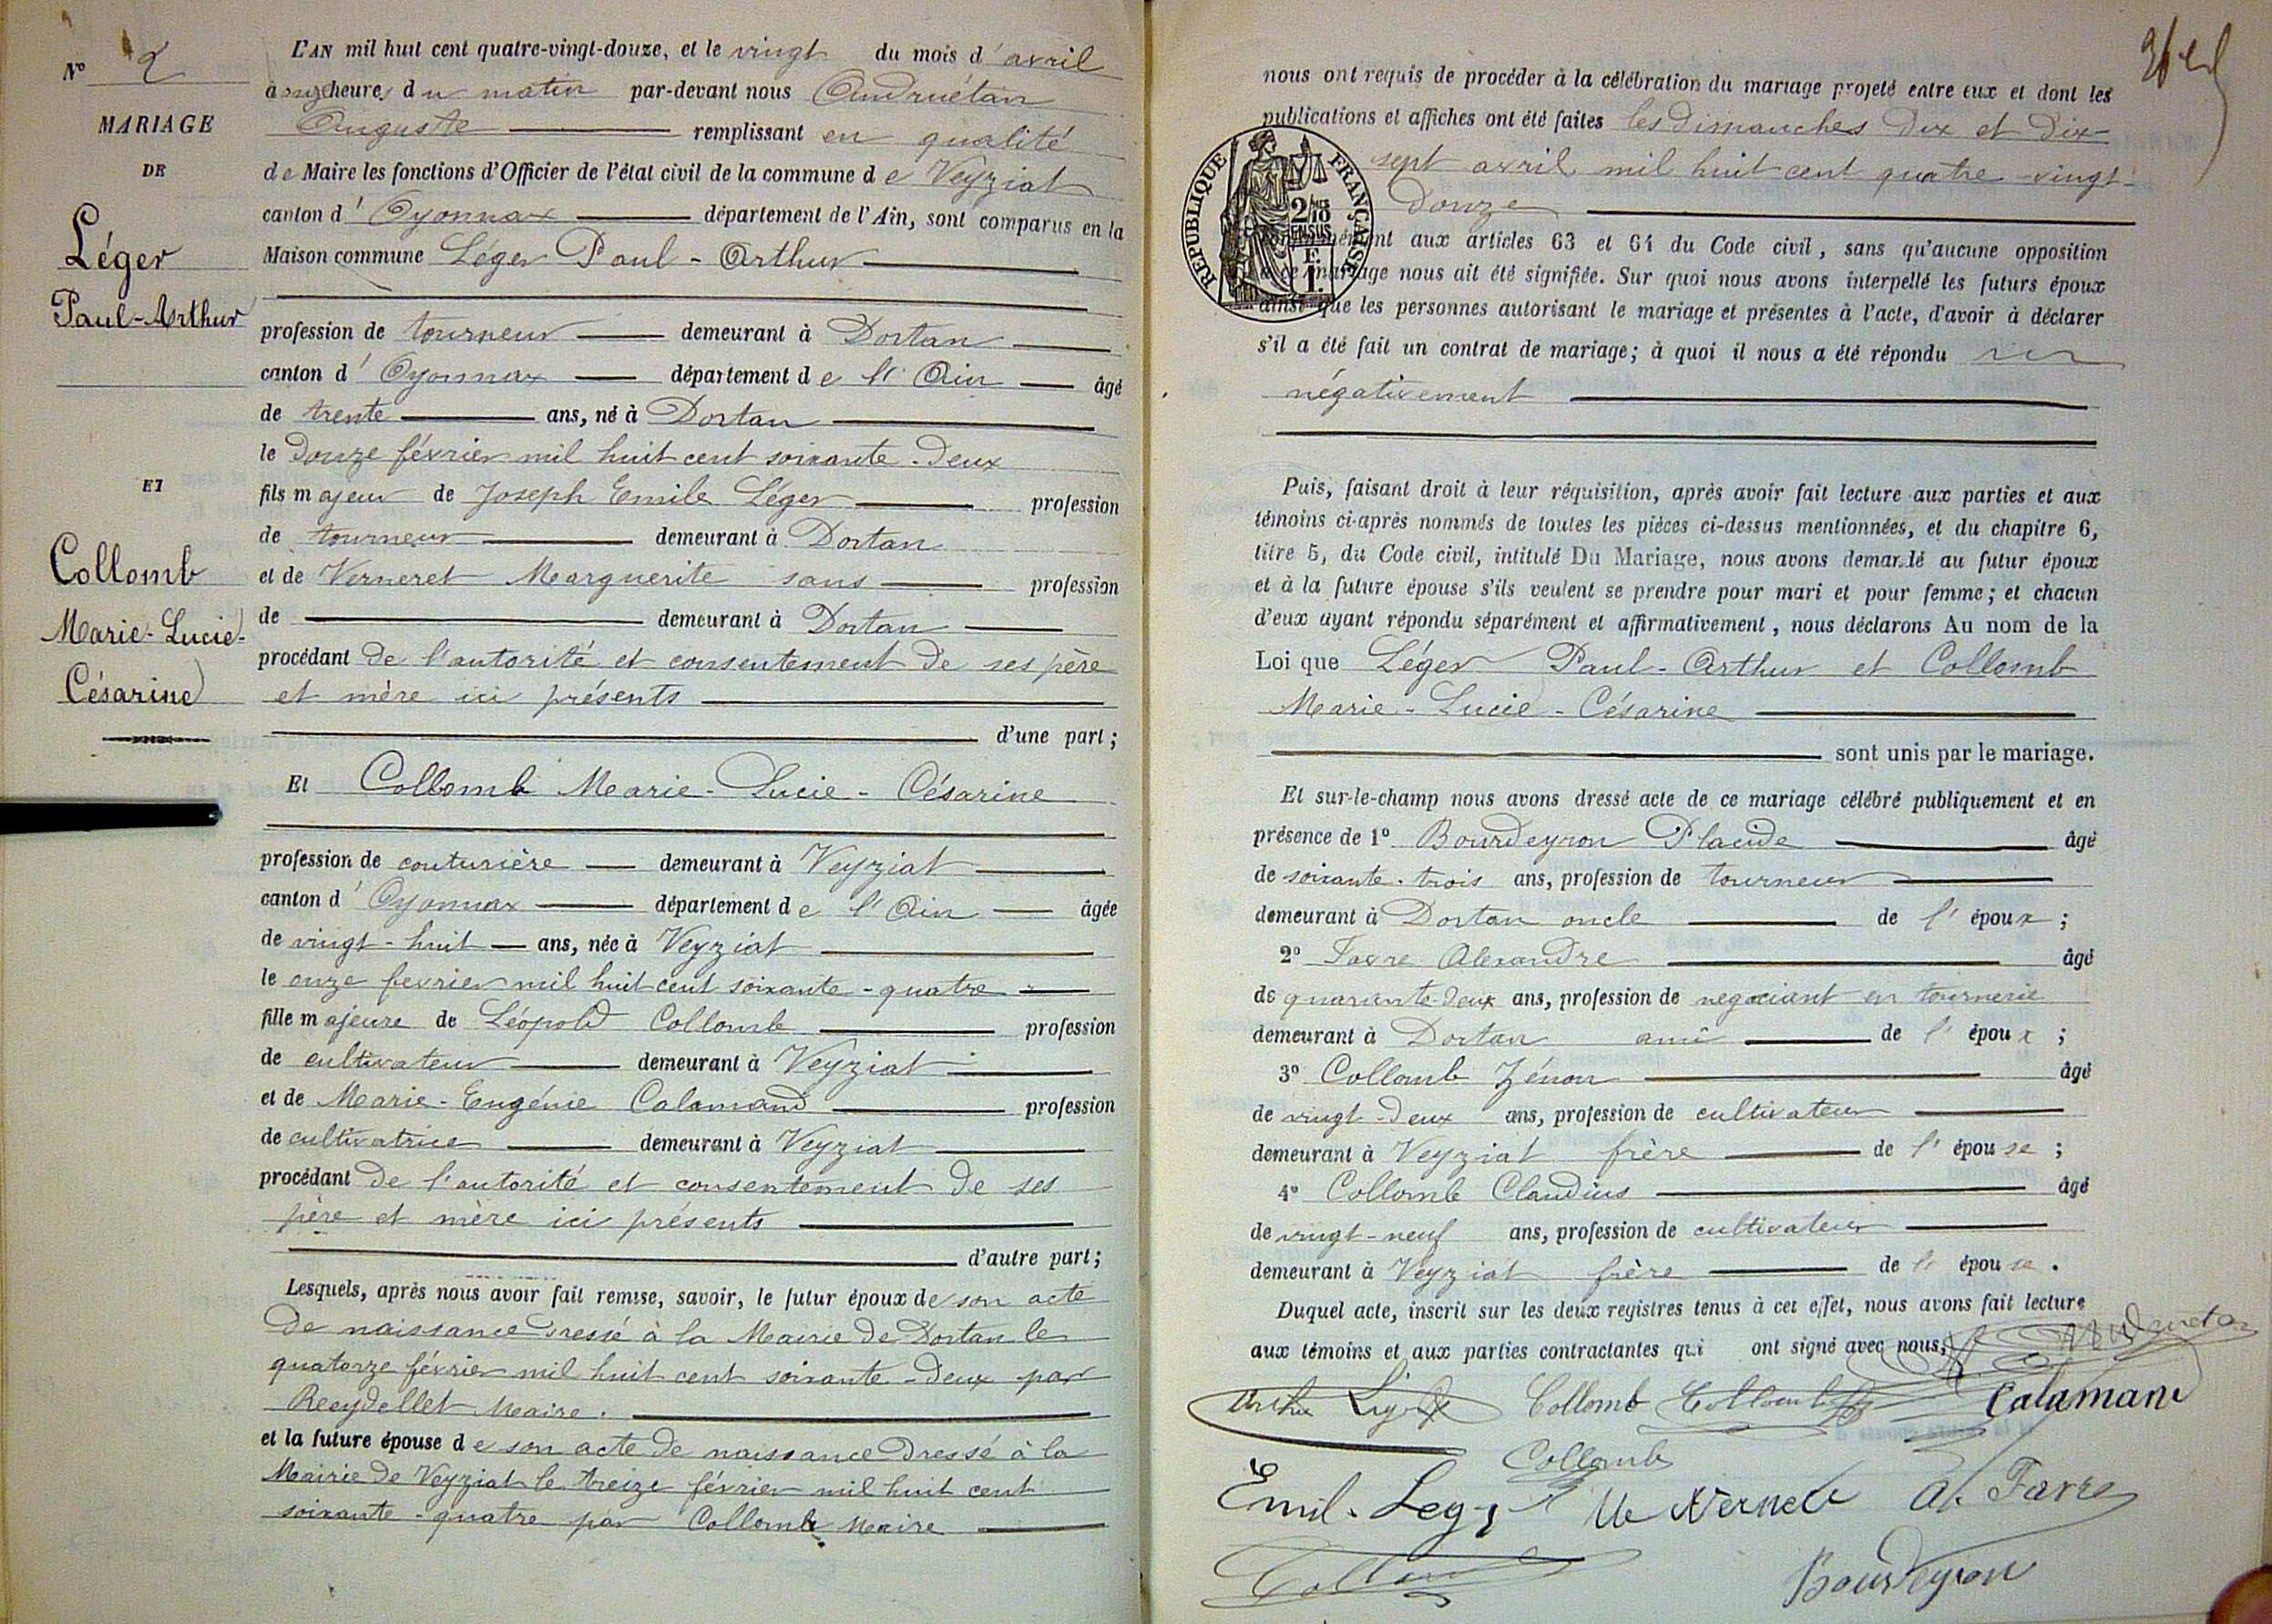 N° 2
MARIAGE
DE
Léger
Paul-Arthur
ET
Collomb
Marie-Lucie-
Césarine
L'AN mil huit cent quatre-vingt-douze, et le vingt du mois d'avril
à onze heures du matin par-devant nous Andruétan
Auguste remplissant en qualité
de Maire les fonctions d'Officier de l'état civil de la commune de Veyziat
canton d'Oyonnax département de l'Ain, sont comparus en la
Maison commune Léger Paul-Arthur
profession de tourneur demeurant à Dortan
canton d'Oyonnax département de l'Ain âgé
de trente ans, né à Dortan
le douze février mil huit cent soixante-deux
fils majeur de Joseph Emile Léger profession
de tourneur demeurant à Dortan
et de Verneret Marguerite sans profession
de demeurant à Dortan
procédant de l'autorité et consentement de ses père
et mère ici présents
d'une part;
Et Collomb Marie-Lucie-Césarine
profession de couturière demeurant à Veyziat
canton d'Oyonnax département de l'Ain âgée
de vingt-huit ans, née à Veyziat
le onze fevrier mil huit cent soixante-quatre
fille majeure de Léopold Collomb profession
de cultivateur demeurant à Veyziat
et de Marie-Eugénie Calamand profession
de cultivatrice demeurant à Veyziat
procédant de l'autorité et consentement de ses
père et mère ici présents
d'autre part;
Lesquels, après nous avoir fait remise, savoir, le futur époux de son acte
de naissance dressé à la Mairie de Dortan le
quatorze février mil huit cent soixante-deux par
Reydellet Maire.
et la future épouse de son acte de naissance dressé à la
Mairie de Veyziat le treize février mil huit cent
soixante-quatre par Collomb Maire
nous ont requis de procéder à la célébration du mariage projeté entre eux et dont les
publications et affiches ont été faites les dimanches dix et dix-
sept avril mil huit cent quatre-vingt-
douze
RÉPUBLIQUE FRANÇAISE
2/10
EN SUS
1 F.
conformément aux articles 63 et 64 du Code civil, sans qu'aucune opposition
à ce mariage nous ait été signifiée. Sur quoi nous avons interpellé les futurs époux
ainsi que les personnes autorisant le mariage et présentes à l'acte, d'avoir à déclarer
s'il a été fait un contrat de mariage; à quoi il nous a été répondu
négativement
Puis, faisant droit à leur réquisition, après avoir fait lecture aux parties et aux
témoins ci-après nommés de toutes les pièces ci-dessus mentionnées, et du chapitre 6,
titre 5, du Code civil, intitulé Du Mariage, nous avons demandé au futur époux
et à la future épouse s'ils veulent se prendre pour mari et pour femme; et chacun
d'eux ayant répondu séparément et affirmativement, nous déclarons Au nom de la
Loi que Léger Paul-Arthur et Collomb
Marie-Lucie-Césarine
sont unis par le mariage.
Et sur-le-champ nous avons dressé acte de ce mariage célébré publiquement et en
présence de 1° Bourdeyron Placide âgé
de soixante-trois ans, profession de tourneur
demeurant à Dortan oncle de l'époux;
2° Favre Alexandre âgé
de quarante-deux ans, profession de negociant en tournerie
demeurant à Dortan ami de l'époux;
3° Collomb Zénon âgé
de vingt-deux ans, profession de cultivateur
demeurant à Veyziat frère de l'épouse;
4° Collomb Claudius âgé
de vingt-neuf ans, profession de cultivateur
demeurant à Veyziat frère de l'épouse.
Duquel acte, inscrit sur les deux registres tenus à cet effet, nous avons fait lecture
aux témoins et aux parties contractantes qui ont signé avec nous;
Collomb Collomb Calamand
Collomb
Emil. Léger A. Favre
Collomb Bourdeyron